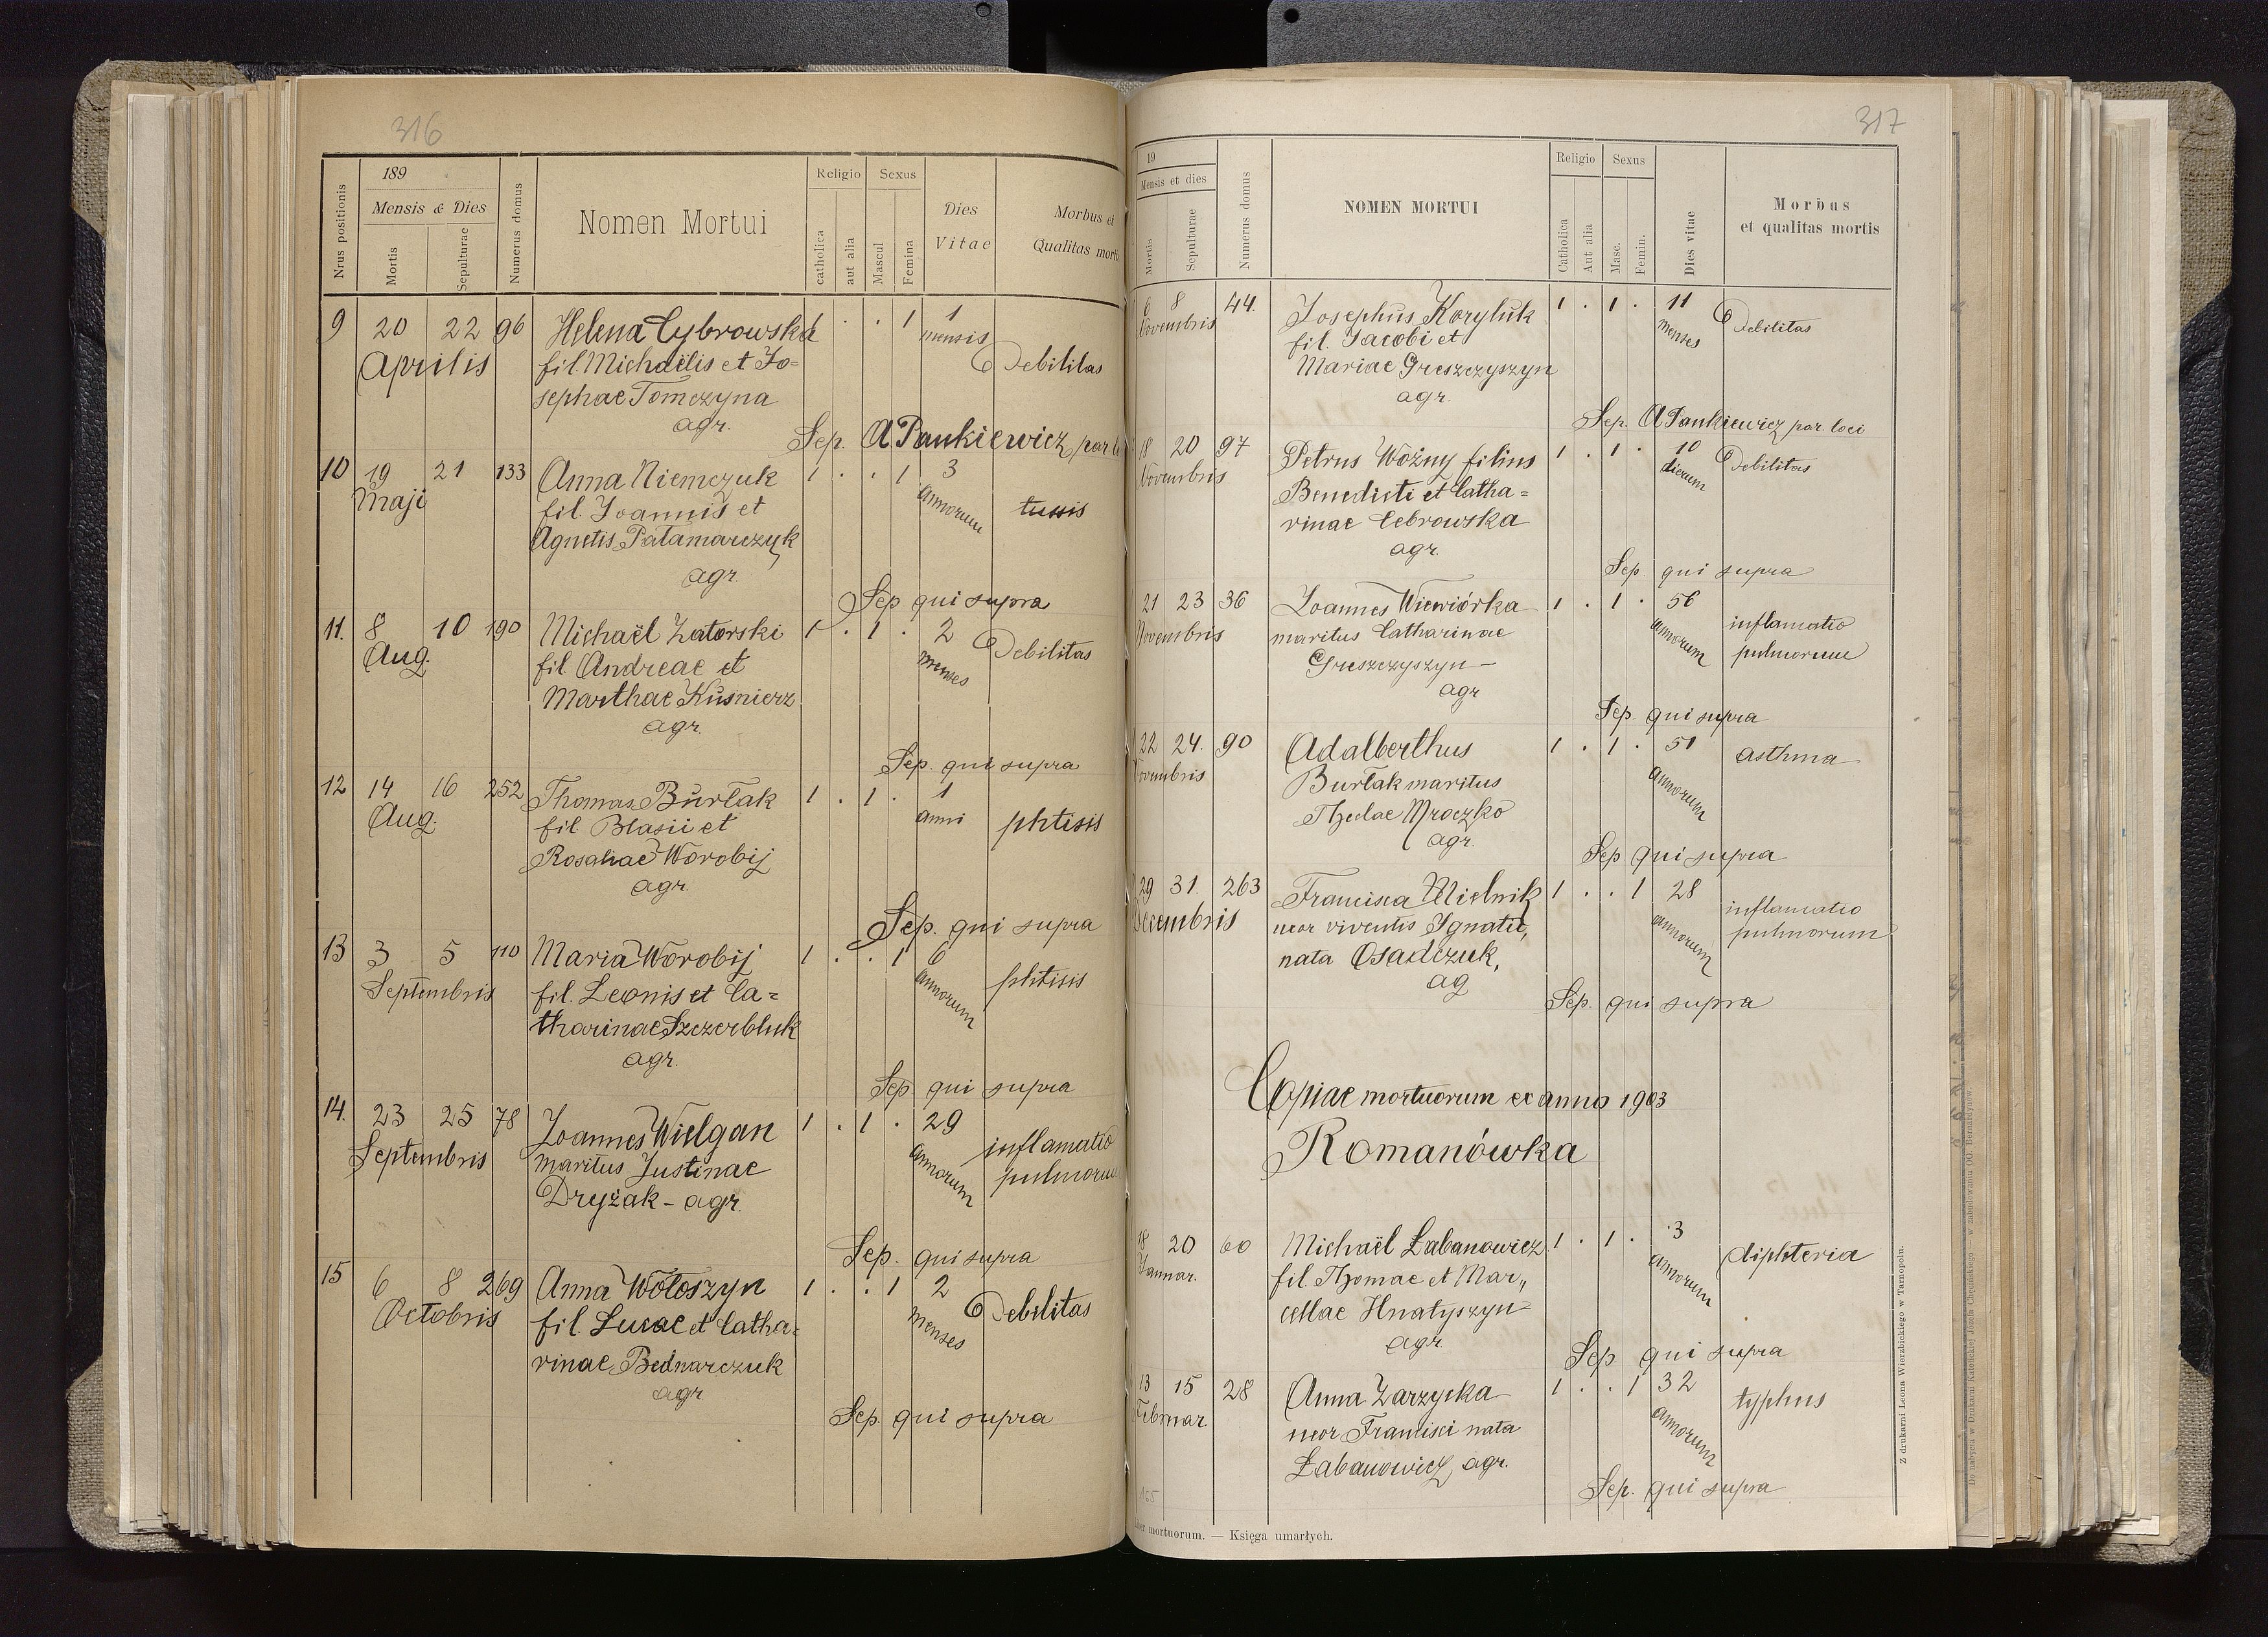 316
189
Mensis & Dies
Nrus positionis
Mortis
Sepulturae
Numerus domus
Nomen Mortui
Religio
catholica
aut alia
Sexus
Mascul
Femina
Dies
Vitae
Morbus et
Qualitas mortis
9 20 22 96 Helena Cybrowska 1 . . 1 1
Aprilis fil. Michaëlis et Jo= mensis Debilitas
sephae Tomczyna
agr.
Sep. A Pankiewicz par. lo
10 19 21 133 Anna Niemczuk 1 . . 1 3
Maji fil. Joannis et annorum tussis
Agnetis Patamarczyk
agr.
Sep qui supra
11. 8 10 190 Michaël Zatorski 1 . 1 . 2
Aug. fil Andreae et menses Debilitas
Marthae Kuśnierz
agr.
Sep. qui supra
12 14 16 252 Thomas Burłak 1 . 1 . 1
Aug. fil. Blasii et anni phtisis
Rosaliae Worobij
agr.
Sep. qui supra
13 3 5 110 Maria Worobij 1 . . 1 6
Septembris fil. Leonis et Ca= annorum phtisis
tharinae Szczerbluk
agr.
Sep qui supra
14. 23 25 78 Joannes Wielgan 1 . 1 . 29
Septembris maritus Justinae annorum inflamatio
Dryżak - agr. pulmorum
Sep. qui supra
15 6 8 269 Anna Wołoszyn 1 . . 1 2
Octobris fil. Lucae et Catha= menses Debilitas
rinae Bednarczuk
agr
Sep. qui supra
317
19
Mensis et dies
Mortis
Sepulturae
Numerus domus
NOMEN MORTUI
Religio
Catholica
Aut alia
Sexus
Masc.
Femin.
Dies vitae
Morbus
et qualitas mortis
6 8 44. Josephus Koryluk 1 . 1 . 11
Novembris fil. Jacobi et menses Debilitas
Mariae Greszczyszyn
agr.
Sep. A Pankiewicz par. loci
18 20 97 Petrus Woźny filius 1 . 1 . 10 Debilitas
Novembris Benedicti et Catha= dierum
rinae Cebrowska
agr.
Sep qui supra
21 23 36 Joannes Wiewiórka 1 . 1 . 56 inflamatio
Novembris maritus Catharinae annorum pulmorum
Greszczyszyn -
agr
Sep. qui supra
22 24. 90 Adalberthus 1 . 1 . 51 asthma
Novembris Burłak maritus annorum
Theclae Mroczko
agr.
Sep qui supra
29 31. 263 Francisca Mielnik 1 . . 1 28 inflamatio
Decembris uxor viventis Ignatii, annorum pulmorum
nata Osadczuk,
ag
Sep. qui supra
Copiae mortuorum ex anno 1903
Romanówka
18 20 60 Michaël Łabanowicz 1 . 1 . 3
Januar. fil. Thomae et Mar„ annorum diphteria
cellae Hnatyszyn
agr.
Sep. qui supra
13 15 28 Anna Zarzycka 1 . . 1 32 typhus
Februar uxor Francisci nata annorum
Łabanowicz, agr.
Sep. qui supra
165
Liber mortuorum. — Księga umarłych.
Z drukarni Leona Wierzbickiego w Tarnopolu.